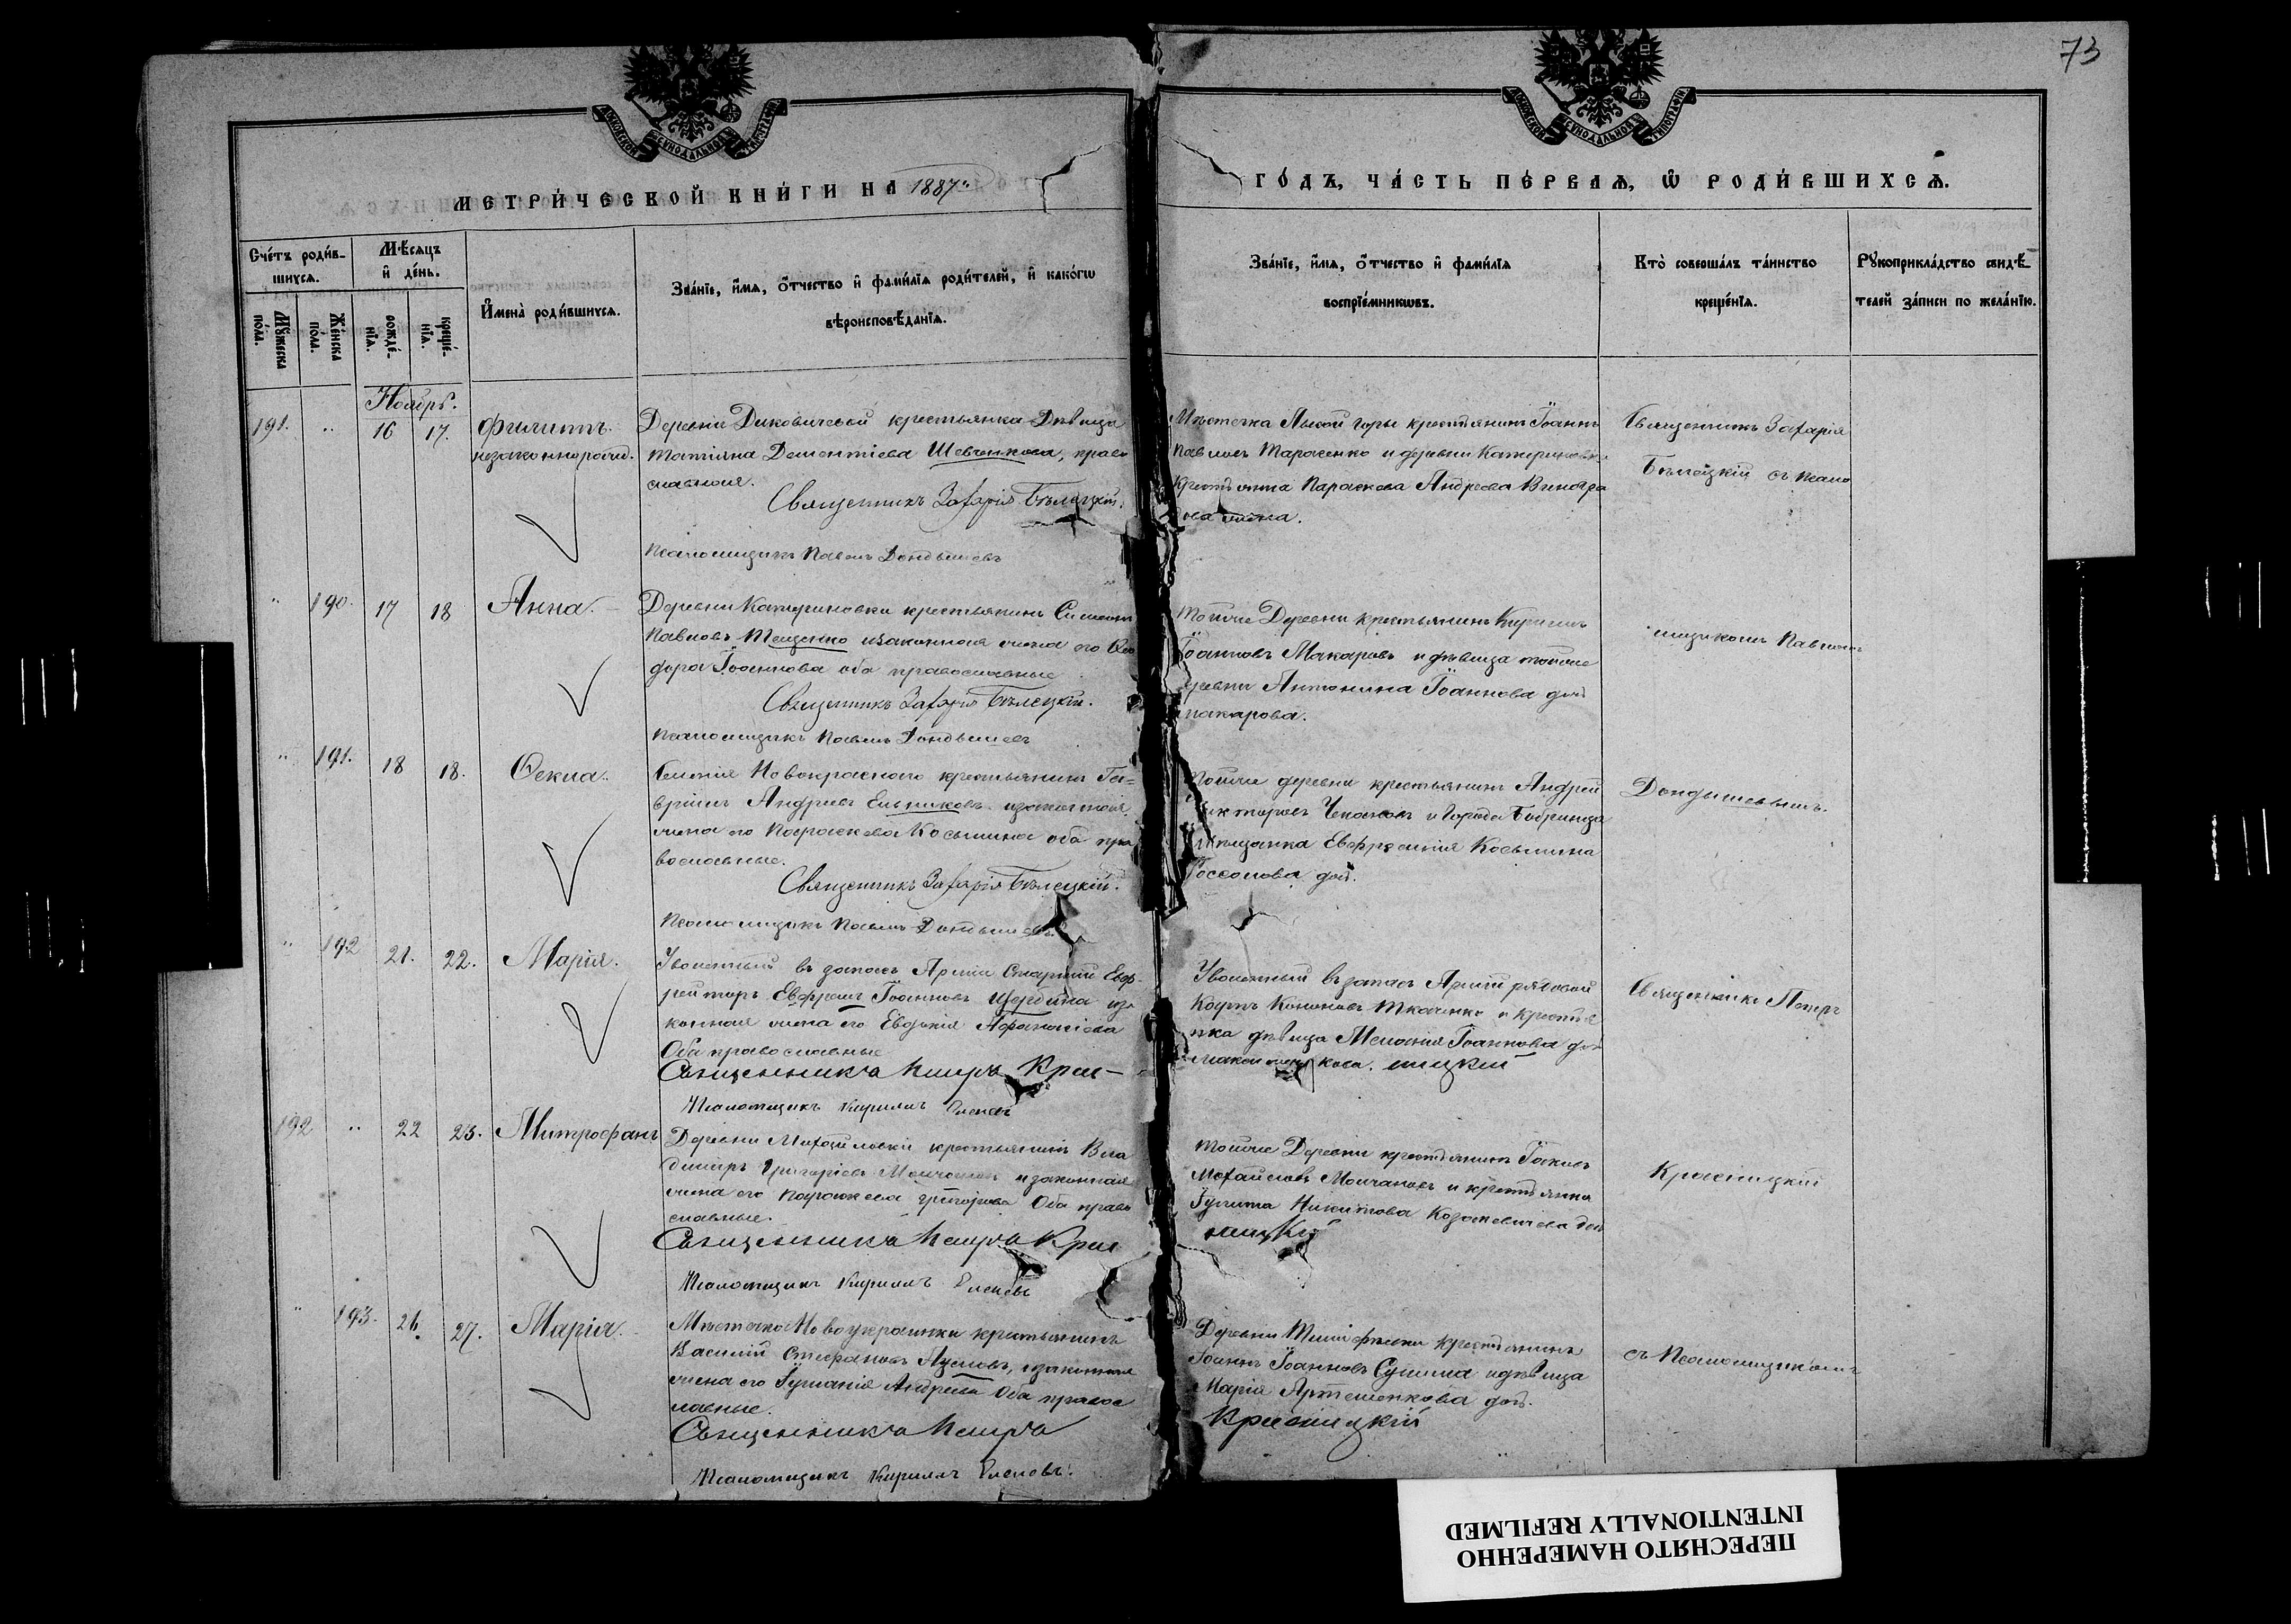 73
МОСКОВСКОЙ СѴНОДАЛЬНОЙ ТИПОГРАФІИ
МОСКОВСКОЙ СѴНОДАЛЬНОЙ ТИПОГРАФІИ
МЕТРИ́ЧЕСКОЙ КНИ́ГИ НА 1887й
ГО́ДЪ, ЧА́СТЬ ПЕ́РВАѦ, Ѽ РОДИ́ВШИХСѦ.
Сче́тъ роди́в-
шихсѧ.
Мꙋ́жеска
по́ла.
Же́нска
по́ла.
Мѣ́сѧцъ
и҆ де́нь.
рожде́-
нїѧ.
креще́-
нїѧ.
И҆мена̀ роди́вшихсѧ.
Зва́нїе, и҆́мѧ, ѻ҆́тчество и҆ фами́лїѧ роди́телей, и҆ како́гѡ
вѣроисповѣ́данїѧ.
Зва́нїе, и҆́мѧ, ѻ҆́тчество и҆ фами́лїѧ
воспрїе́мникѡвъ.
Кто̀ соверша́лъ та́инство
креще́нїѧ.
Рꙋкоприкла́дство свидѣ́-
телей за́писи по жела́нїю.
Ноябрь.
191. " 16 17. Филиппъ.
незаконнорожд.
Деревни Диковичевой крестьянка Дѣвица
Татіяна Дементіева Шевченкова, право
славная.
Священникъ Захарія Бѣлецкій.
Псаломщикъ Павелъ Дондышевъ
Мѣстечка Лысой горы крестьянинъ Іоаннъ
Павловъ Тарасенко и деревни Катериновки
крестьянка Параскева Андреева Виногра
дова жена.
Священникъ Захарія
Бѣлецкій съ псало
" 190. 17 18 Анна.
Деревни Катериновки крестьянинъ Симеонъ
Павловъ Тещенко и законная жена его Ѳео
дора Іоаннова оба православные
Священникъ Захарія Бѣлецкій.
Псаломщикъ Павелъ Дондышевъ
Тойже Деревни крестьянинъ Кириллъ
Іоанновъ Макаровъ и дѣвица тойже
деревни Антонина Іоаннова дочь
Макарова.
мщикомъ Павломъ
" 191. 18 18. Ѳекла.
Селенія Новокрасного крестьянинъ Га=
вріилъ Андреевъ Ельниковъ и законная
жена его Параскева Косьмина оба пра
вославные.
Священникъ Захарія Бѣлецкій.
Псаломщикъ Павелъ Дондышевъ
Тойже деревни крестьянинъ Андрей
и Города Бобринца
мѣщанка Евфросинія Косьмина
дочь.
Дондышевымъ.
" 192 21. 22. Марія.
Уволенный въ запасъ Арміи Старшій Еф-
рейторъ Евфремъ Іоанновъ Щербина и за
конная жена его Евдокія Афанасіева
Оба православные
Священникъ Петръ Крас-
Псаломщикъ Кириллъ
Уволенный въ запасъ Арміи рядовой
Кононовъ Ткаченко и крестья
нка дѣвица Меланія Іоаннова дочь
ницкій
Священникъ Петръ
192 " 22 23. Митрофанъ
Деревни Михайловки крестьянинъ Вла
диміръ Григоріевъ Молчановъ и законная
жена его Параскева Григорьева Оба право
славные.
Священникъ Петръ Крас
Псаломщикъ Кириллъ
Тойже Деревни крестьянинъ Іаковъ
Михайловъ Молчановъ и крестьянка
Іулита Никитова дочь
ницкій
Красницкій
" 193. 26. 27. Марія.
Мѣстечка Новоукраинки крестьянинъ
Василій Стефановъ и законная
жена его Іуліанія Андреева Оба правос
лавные.
Священникъ Петръ
Псаломщикъ Кириллъ
Деревни крестьянинъ
Іоаннъ Іоанновъ и дѣвица
Марія Артеменкова дочь.
Красницкій
съ Псаломщикомъ
ПЕРЕСНЯТО НАМЕРЕННО
INTENTIONALLY REFILMED